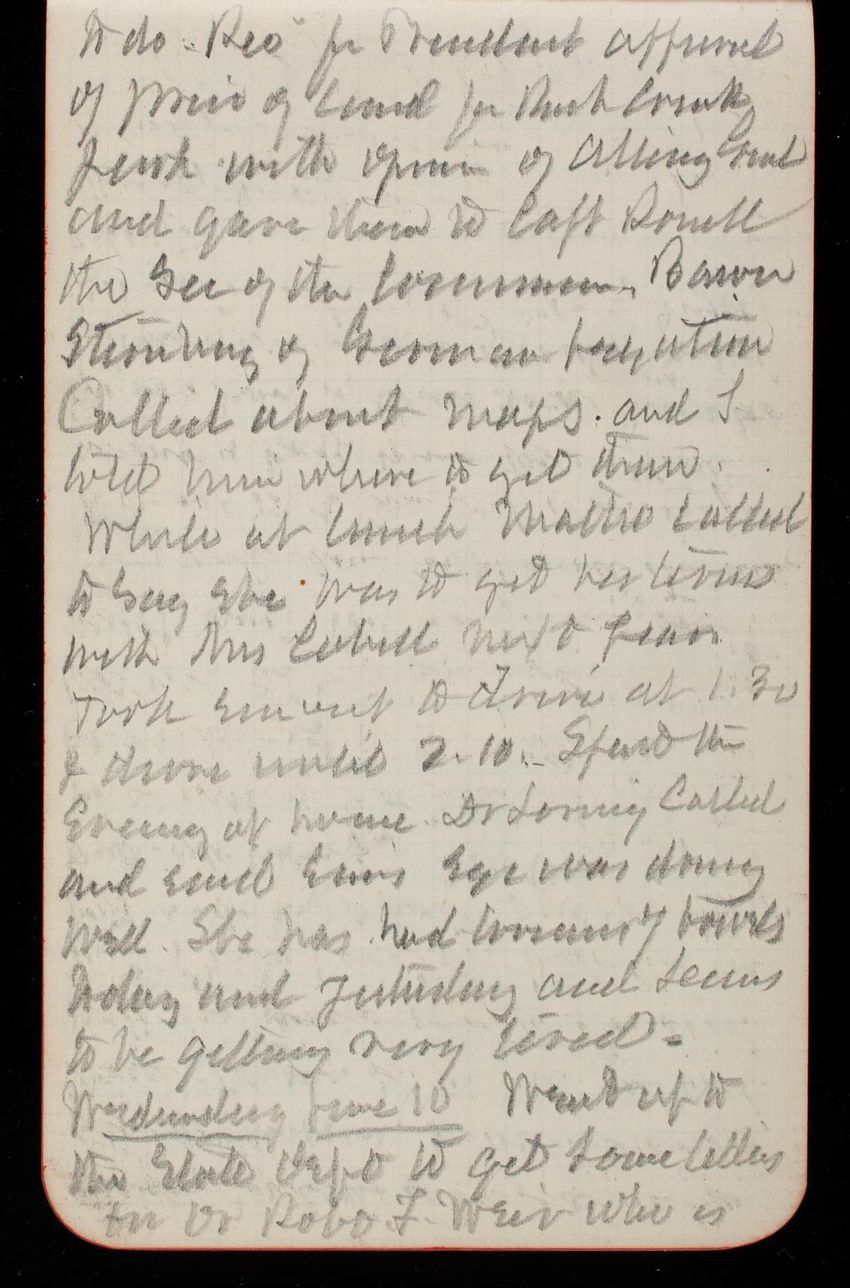 to do. Recd for President approval
of price of land for Rock Creek
Park with opinion of Attieng Genl
and gave them to Capt Rosell
the Sec of the Commission. Baron
Sternburg of German Legation
Called about maps. and I
told him where to get them.
While at lunch Mattie called
to say she was to get her
with Mrs Cabell next year.
Took Emi out to drive at 1.30
& drove until 2.10. Spent the
Evening at home. Dr Loring Called
and said Emis Eye was doing
well. She has had looseness of bowels
today and yesterday and seems
to be getting very tired.
Wednesday June 10 Went up to
the State Dept to get some letters
for Dr Robt F. Weir who is